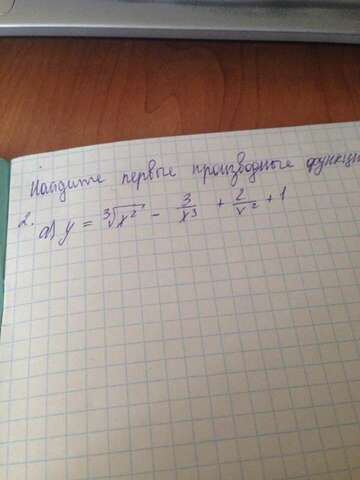 Найдите первые производные функци
2. а) y = ∛x² - 3/x³ + 2/x² + 1